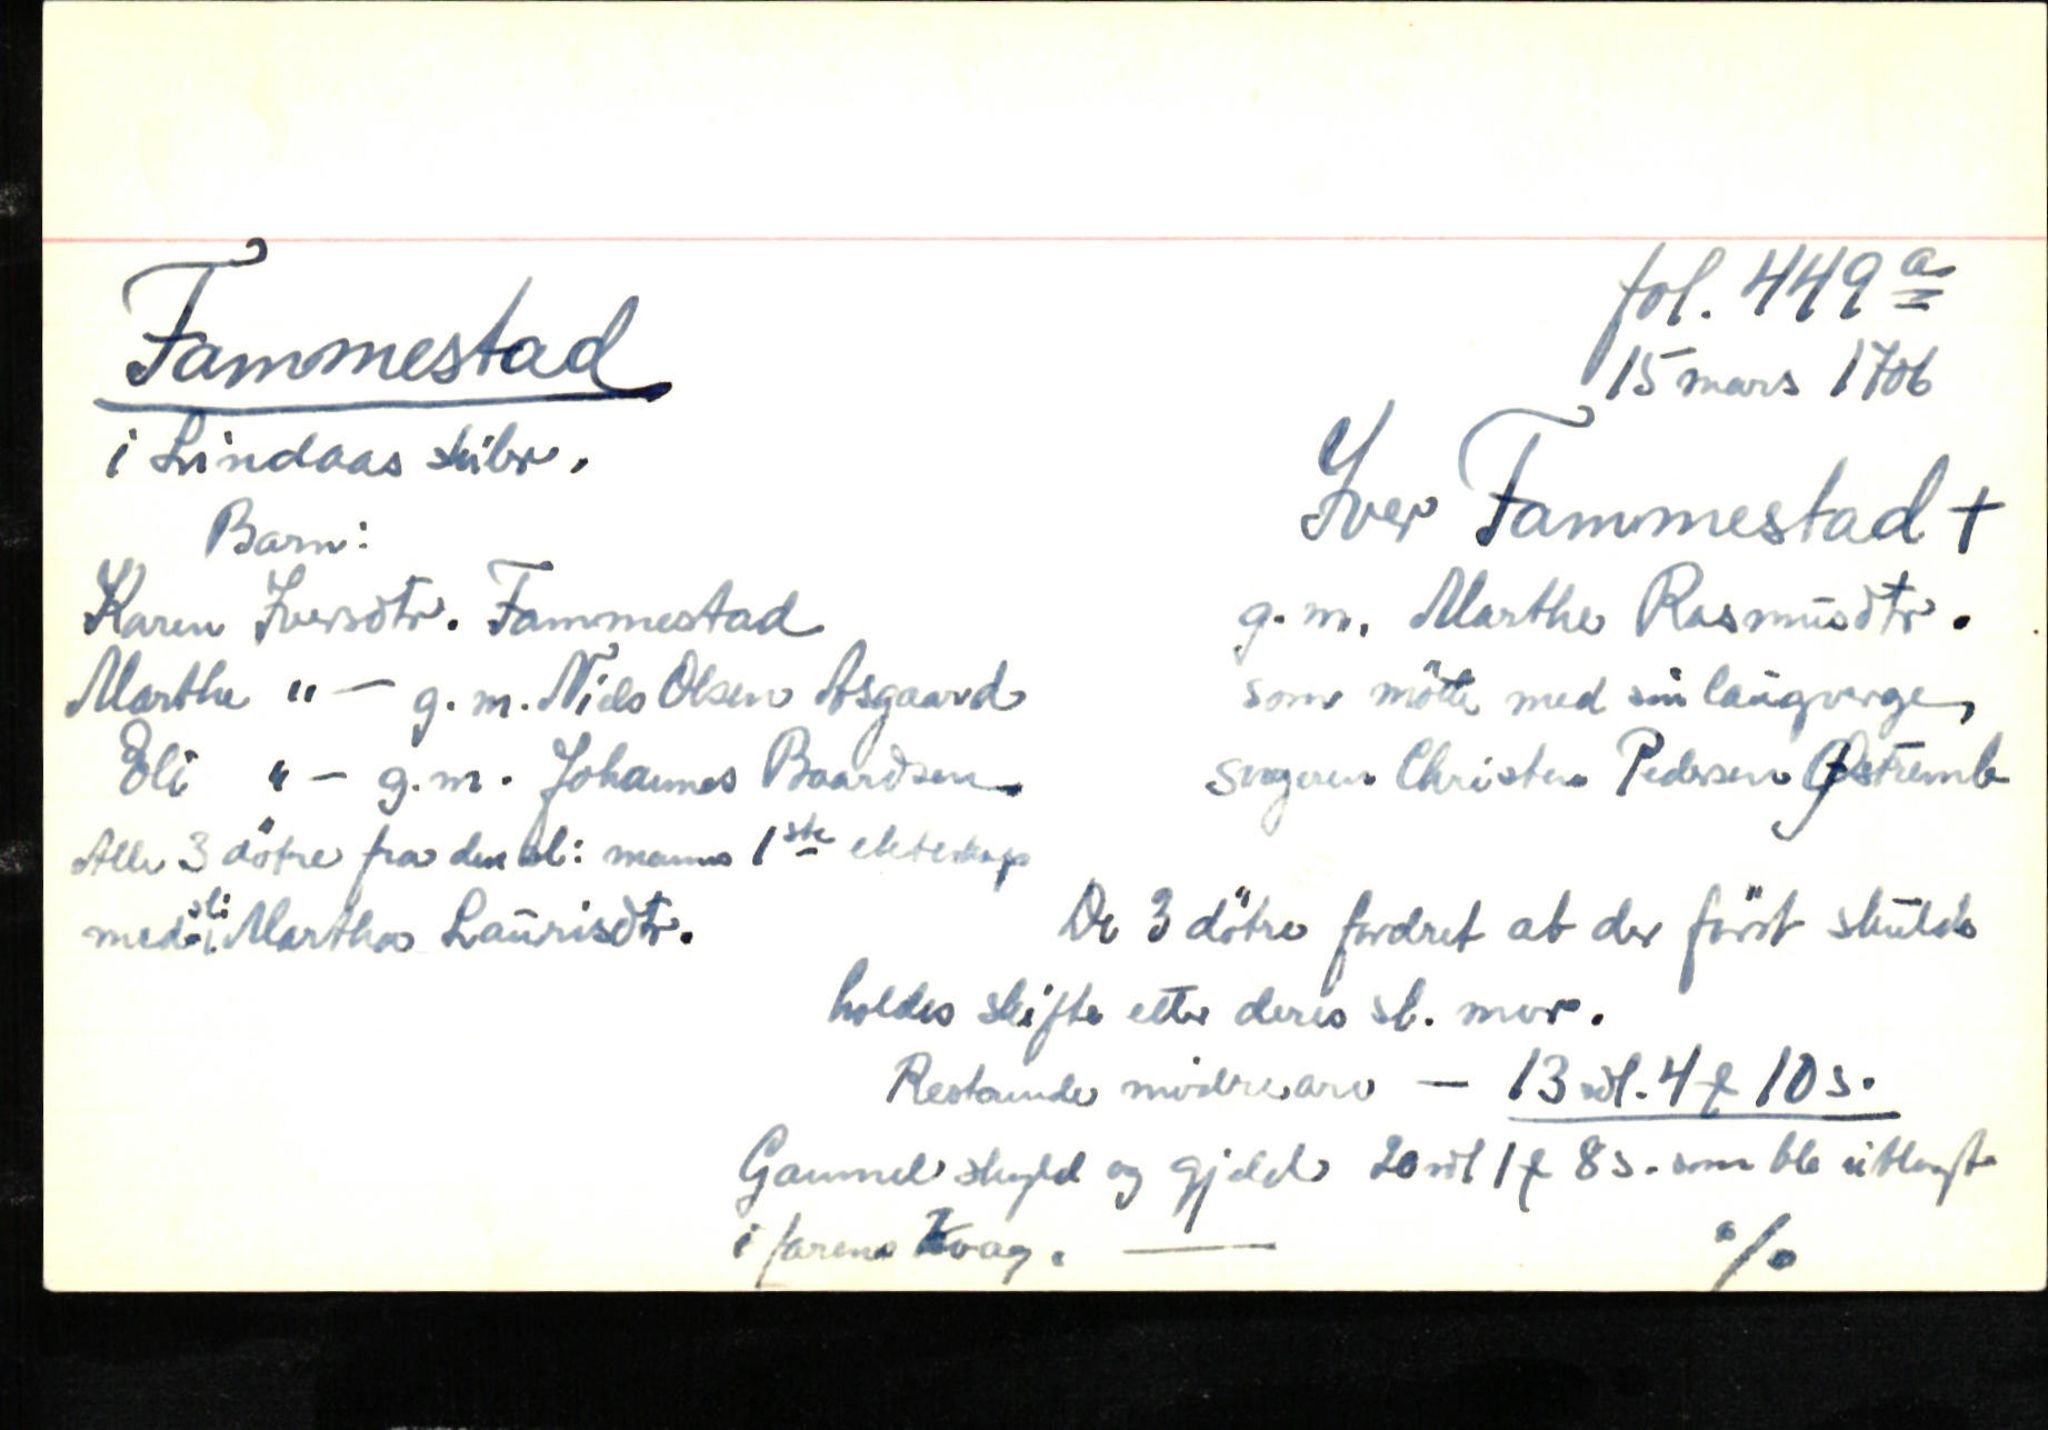 fol. 449 a
15 mars 1706
Fammestad
i Lindaas skibr.
Iver Fammestad +
g. m. Marthe Rasmusdtr.
som mötte med sin laugverge,
svogeren Christen Pedersen
Barn:
Karen Iversdtr. Fammestad
Marthe " — g. m. Niels Olsen Asgaard
Eli " — g. m. Johannes Baardsen
Alle 3 dötre fra den sl: manns 1ste ekteskap
med sl: Martha Laurisdtr.
De 3 dötre fordret at der först skulde
holdes skifte etter deres sl. mor.
Restende mödrearv — 13 rdl. 4 ƒ 10 s.
Gammel skyld og gjeld 20 rdl 1 ƒ 8 s. som ble utlagt
i farens